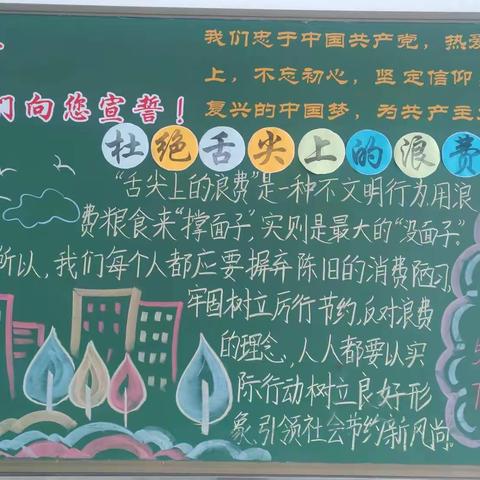 我们忠于中国共产党，热爱
上，不忘初心，坚定信仰
复兴的中国梦，为共产主
们向您宣誓！
杜绝舌尖上的浪费
“舌尖上的浪费”是一种不文明行为，用浪
费粮食来“撑面子”，实则是最大的“没面子”。
所以，我们每个人都应要摒弃陈旧的消费陋习，
牢固树立厉行节约、反对浪费
的理念，人人都要以实
际行动树立良好形
象、引领社会节约新风尚。